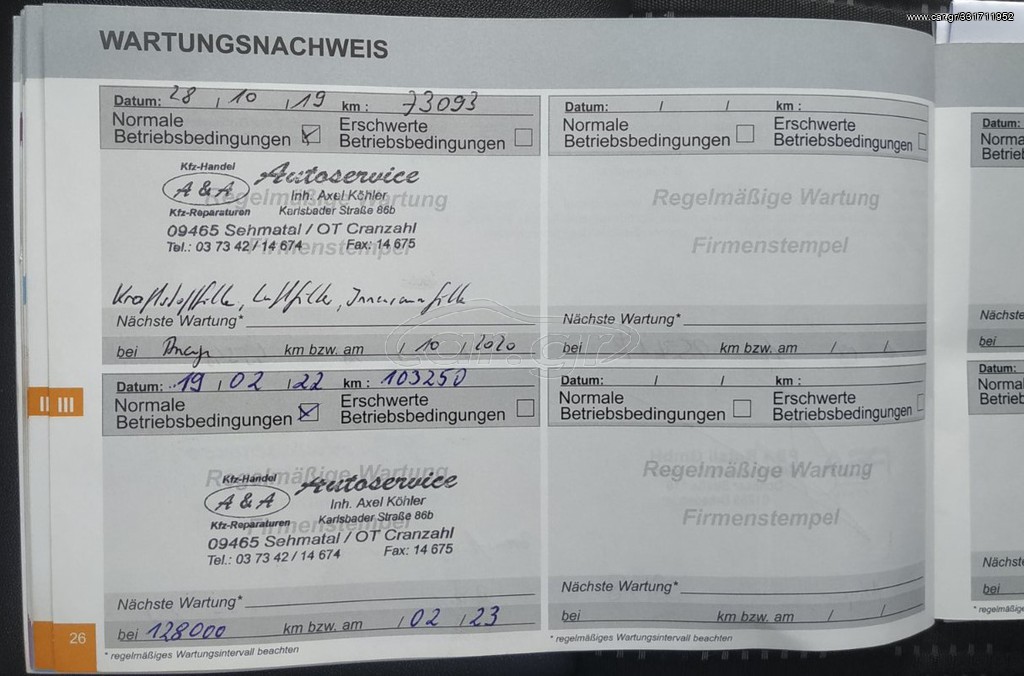 www.car.gr/331711952
WARTUNGSNACHWEIS
Datum: 28 / 10 / 19 km : 73093
Normale Betriebsbedingungen
Erschwerte Betriebsbedingungen
Regelmäßige Wartung
Firmenstempel
Kfz-Handel
A & A
Kfz-Reparaturen
Autoservice
Inh. Axel Köhler
Karlsbader Straße 86b
09465 Sehmatal / OT Cranzahl
Tel.: 03 73 42 / 14 674 Fax: 14 675
Kraftstofffilter, Luftfilter, Innenraumfilter
Nächste Wartung*
bei km bzw. am / 10 / 2020
Datum: / / km :
Normale Betriebsbedingungen
Erschwerte Betriebsbedingungen
Regelmäßige Wartung
Firmenstempel
Nächste Wartung*
bei km bzw. am / /
car.gr
Datum: 19 / 02 / 22 km : 103250
Normale Betriebsbedingungen
Erschwerte Betriebsbedingungen
Regelmäßige Wartung
Firmenstempel
Kfz-Handel
A & A
Kfz-Reparaturen
Autoservice
Inh. Axel Köhler
Karlsbader Straße 86b
09465 Sehmatal / OT Cranzahl
Tel.: 03 73 42 / 14 674 Fax: 14 675
Nächste Wartung*
bei 128000 km bzw. am / 02 / 23
* regelmäßiges Wartungsintervall beachten
Datum: / / km :
Normale Betriebsbedingungen
Erschwerte Betriebsbedingungen
Regelmäßige Wartung
Firmenstempel
Nächste Wartung*
bei km bzw. am / /
* regelmäßiges Wartungsintervall beachten
II III
26
Datum:
Nächste
bei
Datum:
Nächst
bei